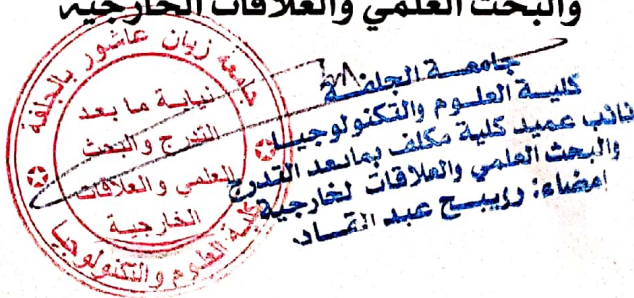 والبحث العلمي والعلاقات الخارجية
جامعة زيان عاشور بالجلفة
نيابة ما بعد
التدرج والبحث
العلمي والعلاقات
الخارجية
كلية العلوم والتكنولوجيا
جامعـــة الجلفـــة
كليـة العلـوم والتكنولوجيـا
نائب عميد كلية مكلف بمابعد التدرج
والبحث العلمي والعلاقات لخارجية
امضاء: رويبـح عبد القـادر